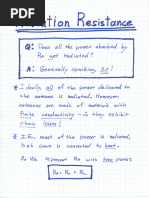 Resistance
Q: Does all the power absorbed by
Ra get radiated?
A: Generally speaking, no!
* Ideally, all of the power delivered to
the antenna is radiated. However
antennas are made of materials with
finite conductivity - ∴ they exhibit
ohmic losses!
* I.E., most of the power is radiated,
but some is converted to heat.
∴ We represent Ra with two parts: